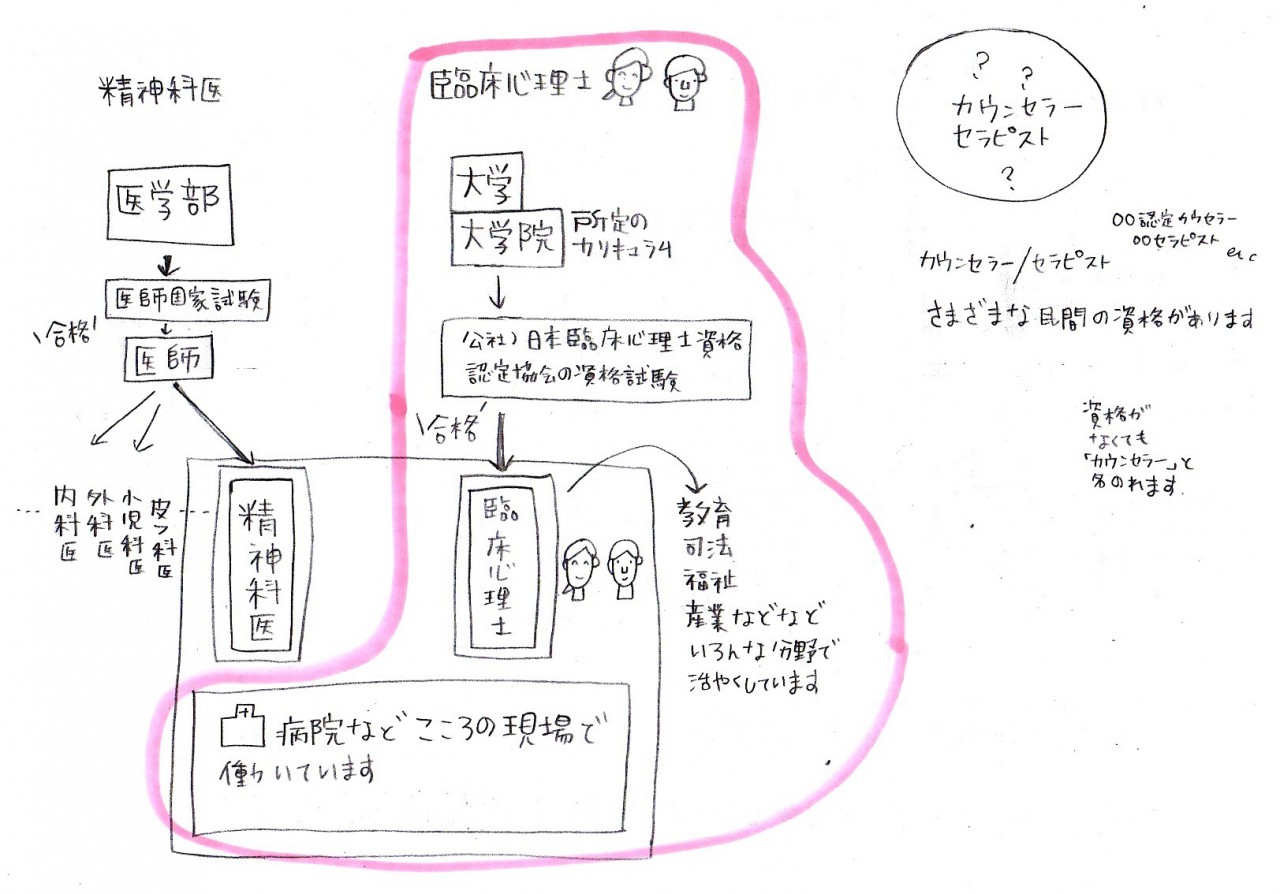 精神科医
医学部
医師国家試験
合格
医師
内科医
外科医
小児科医
皮フ科医
精神科医
臨床心理士
大学
大学院
所定の
カリキュラム
(公社)日本臨床心理士資格
認定協会の資格試験
合格
臨床心理士
教育
司法
福祉
産業などなど
いろんな分野で
活やくしています
病院など こころの現場で
働いています
?
?
カウンセラー
セラピスト
?
〇〇認定カウセラー
〇〇セラピスト
etc
カウンセラー/セラピスト
さまざまな民間の資格があります
資格が
なくても
「カウンセラー」と
名のれます.